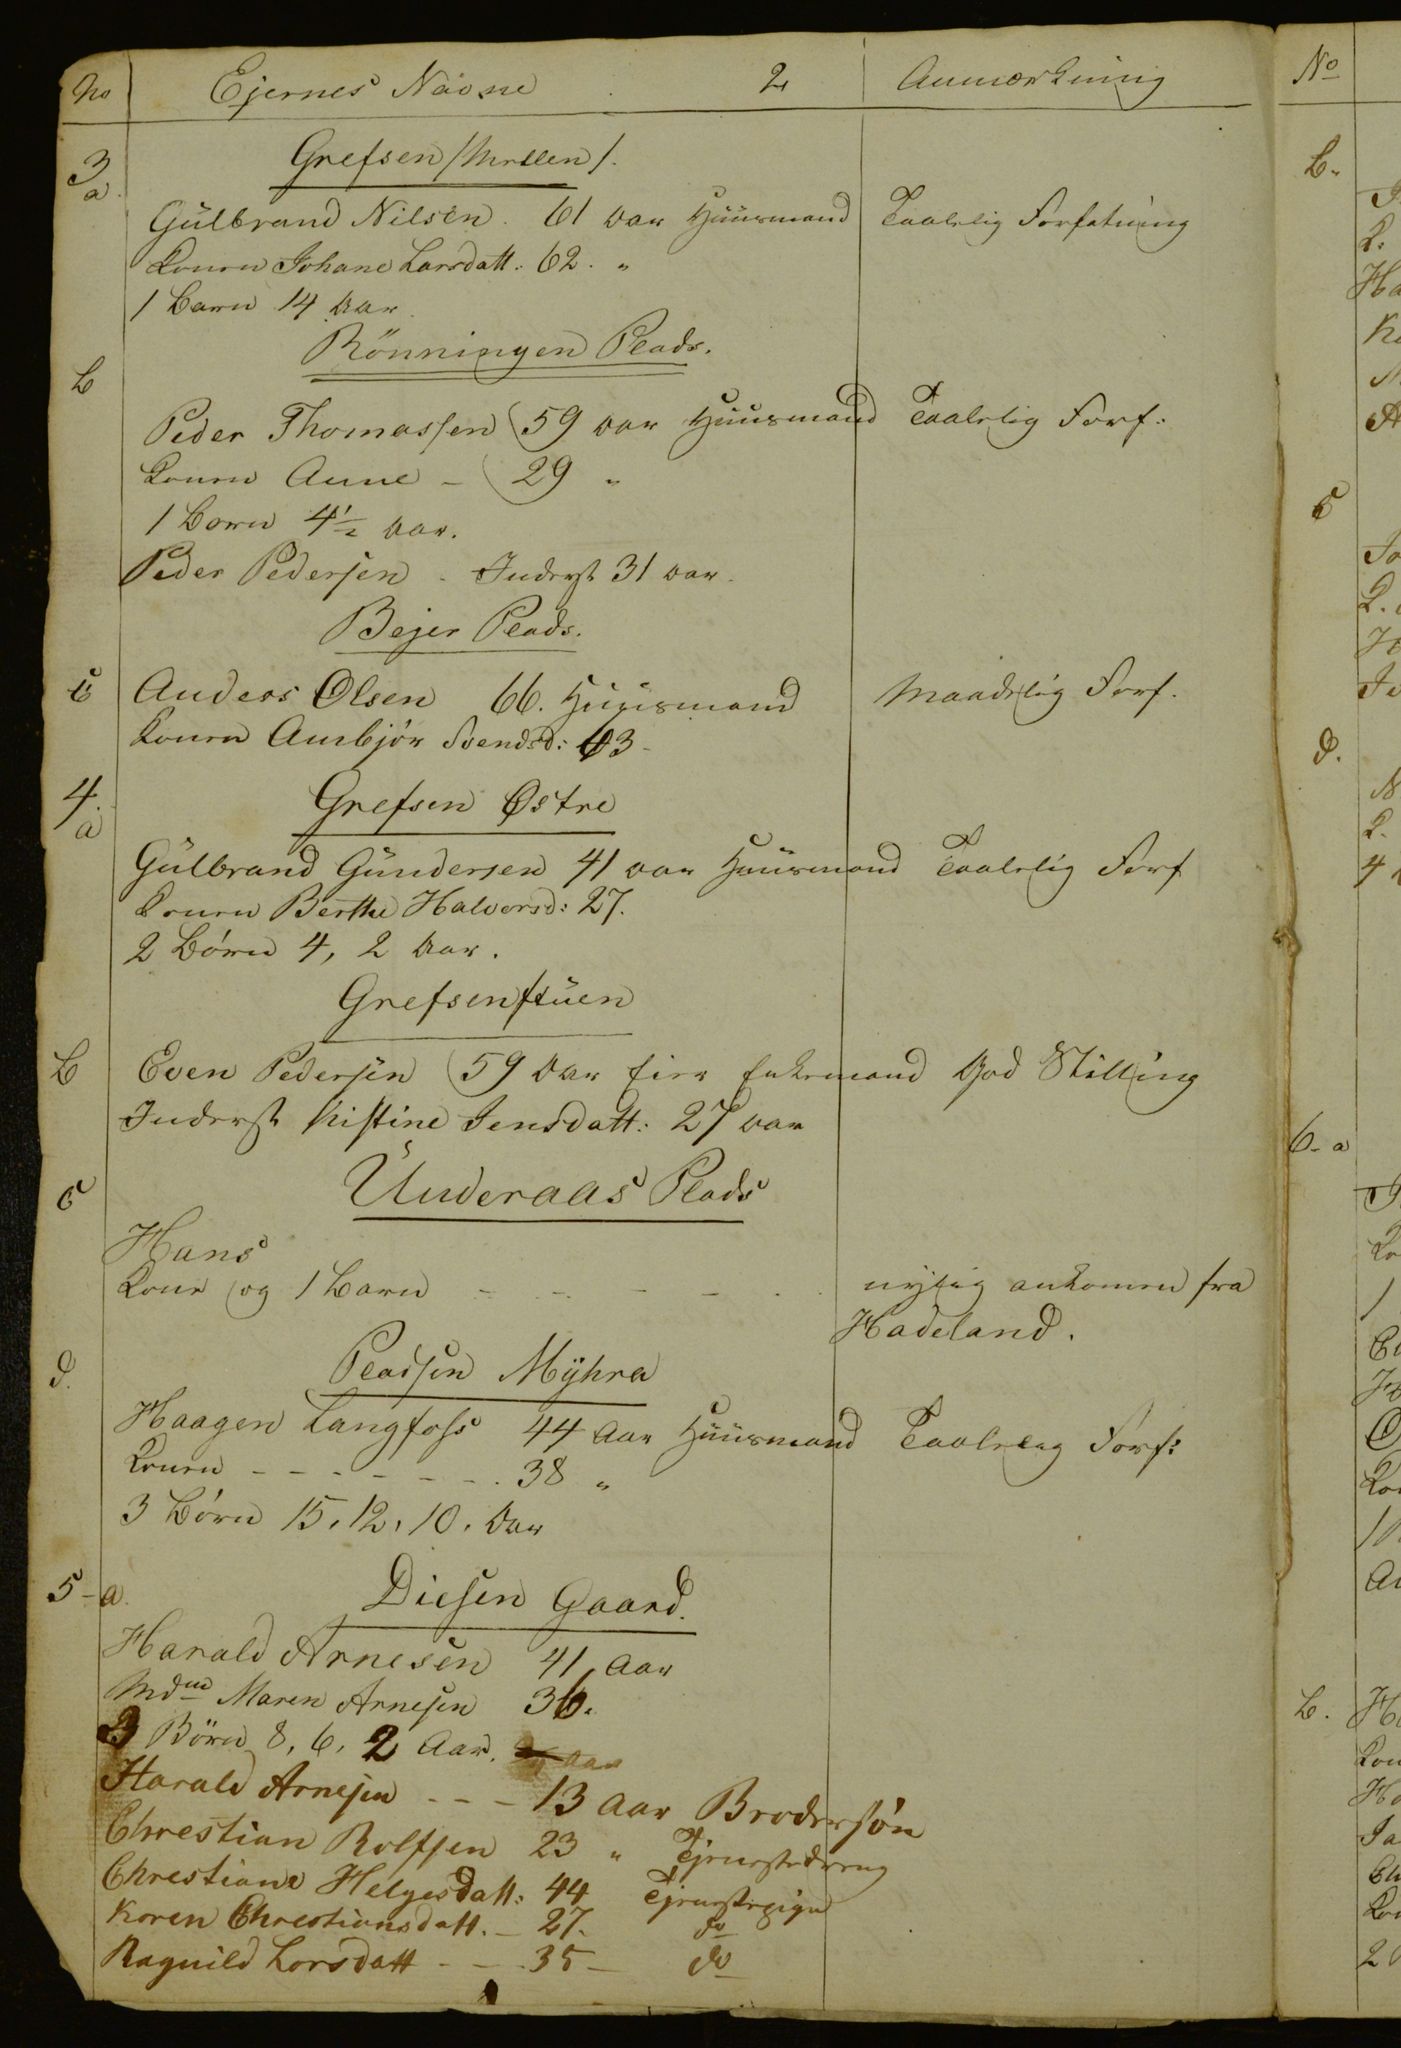 No Ejernes Navne 2 Anmærkning
3 a Grefsen /Mellen/.
Gulbrand Nilsen. 61 Aar Huusmand Taalelig Forfatning
Konen Johane Larsdatt: 62. "
1 Barn 14 Aar
b Rönningen Plads.
Peder Thomassen 59 Aar Huusmand Taalelig Forf:
Konen Anne - 29 "
1 Barn 4 1/2 Aar.
Peder Pedersen. Inderst 31 Aar.
Bejer Plads.
c Anders Olsen 66. Huusmand Maadelig Forf.
Konen Anbjør Svendsd: 63 -
4. a Grefsen Østre
Gulbrand Gundersen 41 Aar Huusmand Taalelig Forf
Konen Berthe Halvorsd: 27.
2 Börn 4, 2 Aar.
Grefsenstuen
b Even Pedersen 59 Aar Eier Enkemand God Stilling
Inderst Kistine Jensdatt: 27 Aar
c Underaas Plads
Hans
Kone og 1 Barn - - - - nylig ankomen fra
Hadeland.
d. Pladsen Myhra
Haagen Langfoss 44 Aar Huusmand Taalelig Forf:
Konen - - - - - - - 38 "
3 Börn 15, 12, 10. Aar
5-a. Diesen Gaard.
Harald Arnesen 41 Aar
Mdme Maren Arnesen 36.
3 Börn 8, 6, 2 Aar. Aar
Harald Arnesen - - - 13 Aar Brodersön
Chrestian Rolfsen 23 " Tjenestedreng
Chrestiane Helgesdatt: 44 Tjenestepige
Karen Chrestiansdatt. - 27. do
Ragnild Larsdatt - - - 35 - do
No
b.
c
d.
6- a
b.